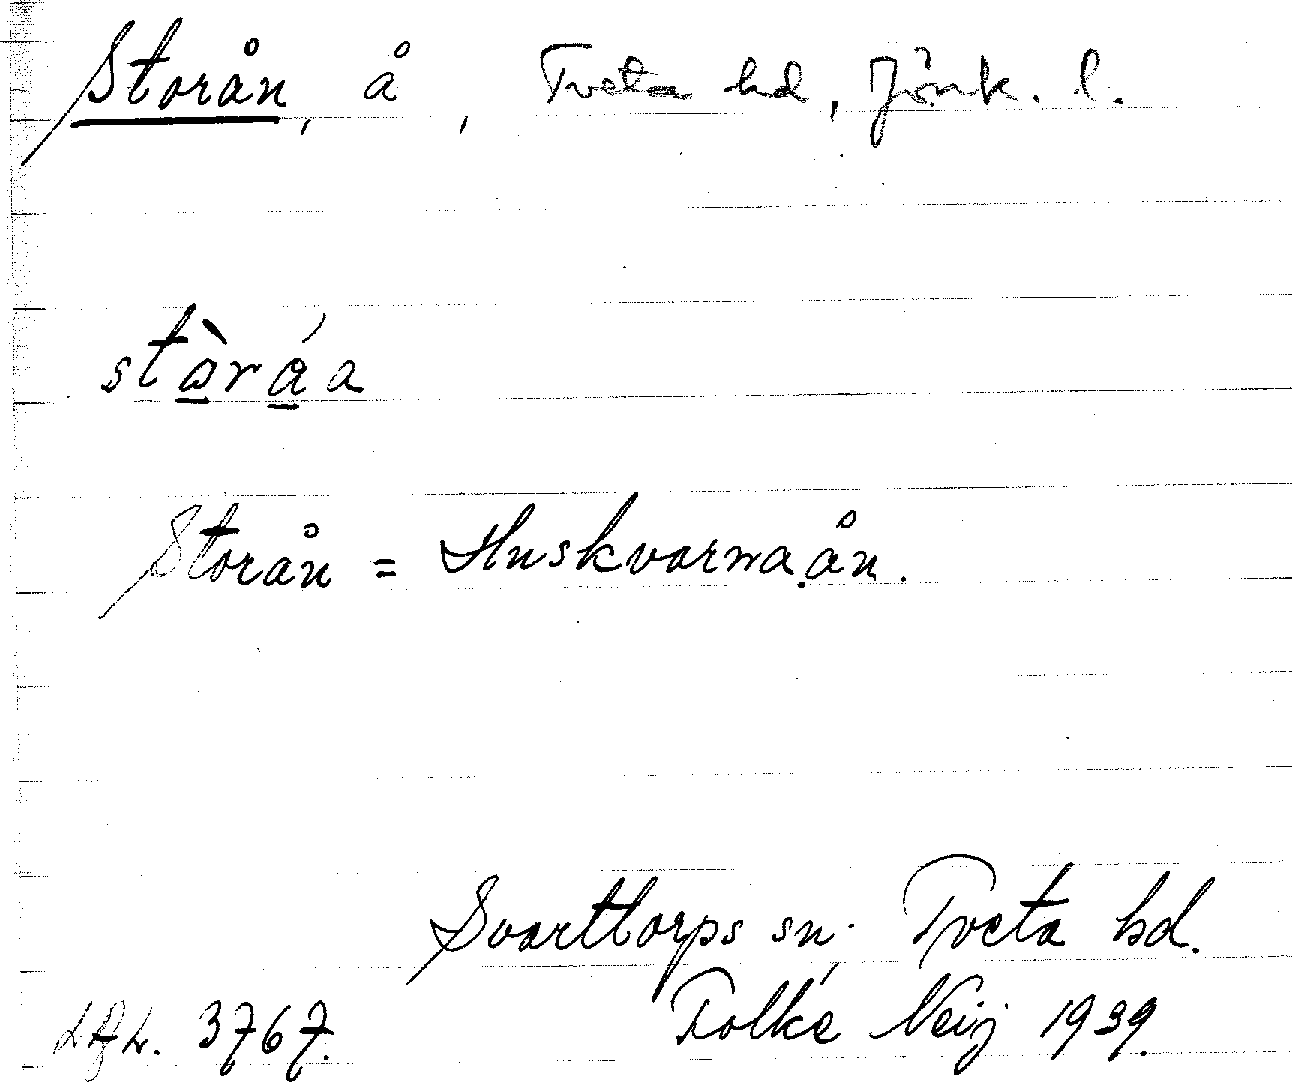 Storån, å, Tveta hd, Jönk. l.
stàráa
Storån = Huskvarnaån.
Svarttorps sn. Tveta hd.
Folke Neij 1939.
3767.